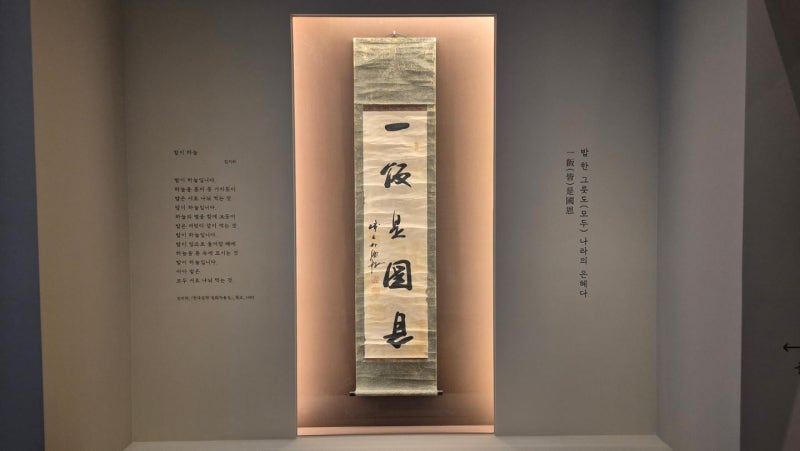 밥이 하늘
김지하
밥이 하늘입니다.
하늘을 혼자 못 가지듯이
밥은 서로 나눠 먹는 것
밥이 하늘입니다.
하늘의 별을 함께 보듯이
밥은 여럿이 같이 먹는 것
밥이 하늘입니다.
밥이 입으로 들어갈 때에
하늘을 몸 속에 모시는 것
밥이 하늘입니다.
아아 밥은
모두 서로 나눠 먹는 것
一飯是國恩
밥 한 그릇도(모두) 나라의 은혜다
一飯(皆)是國恩